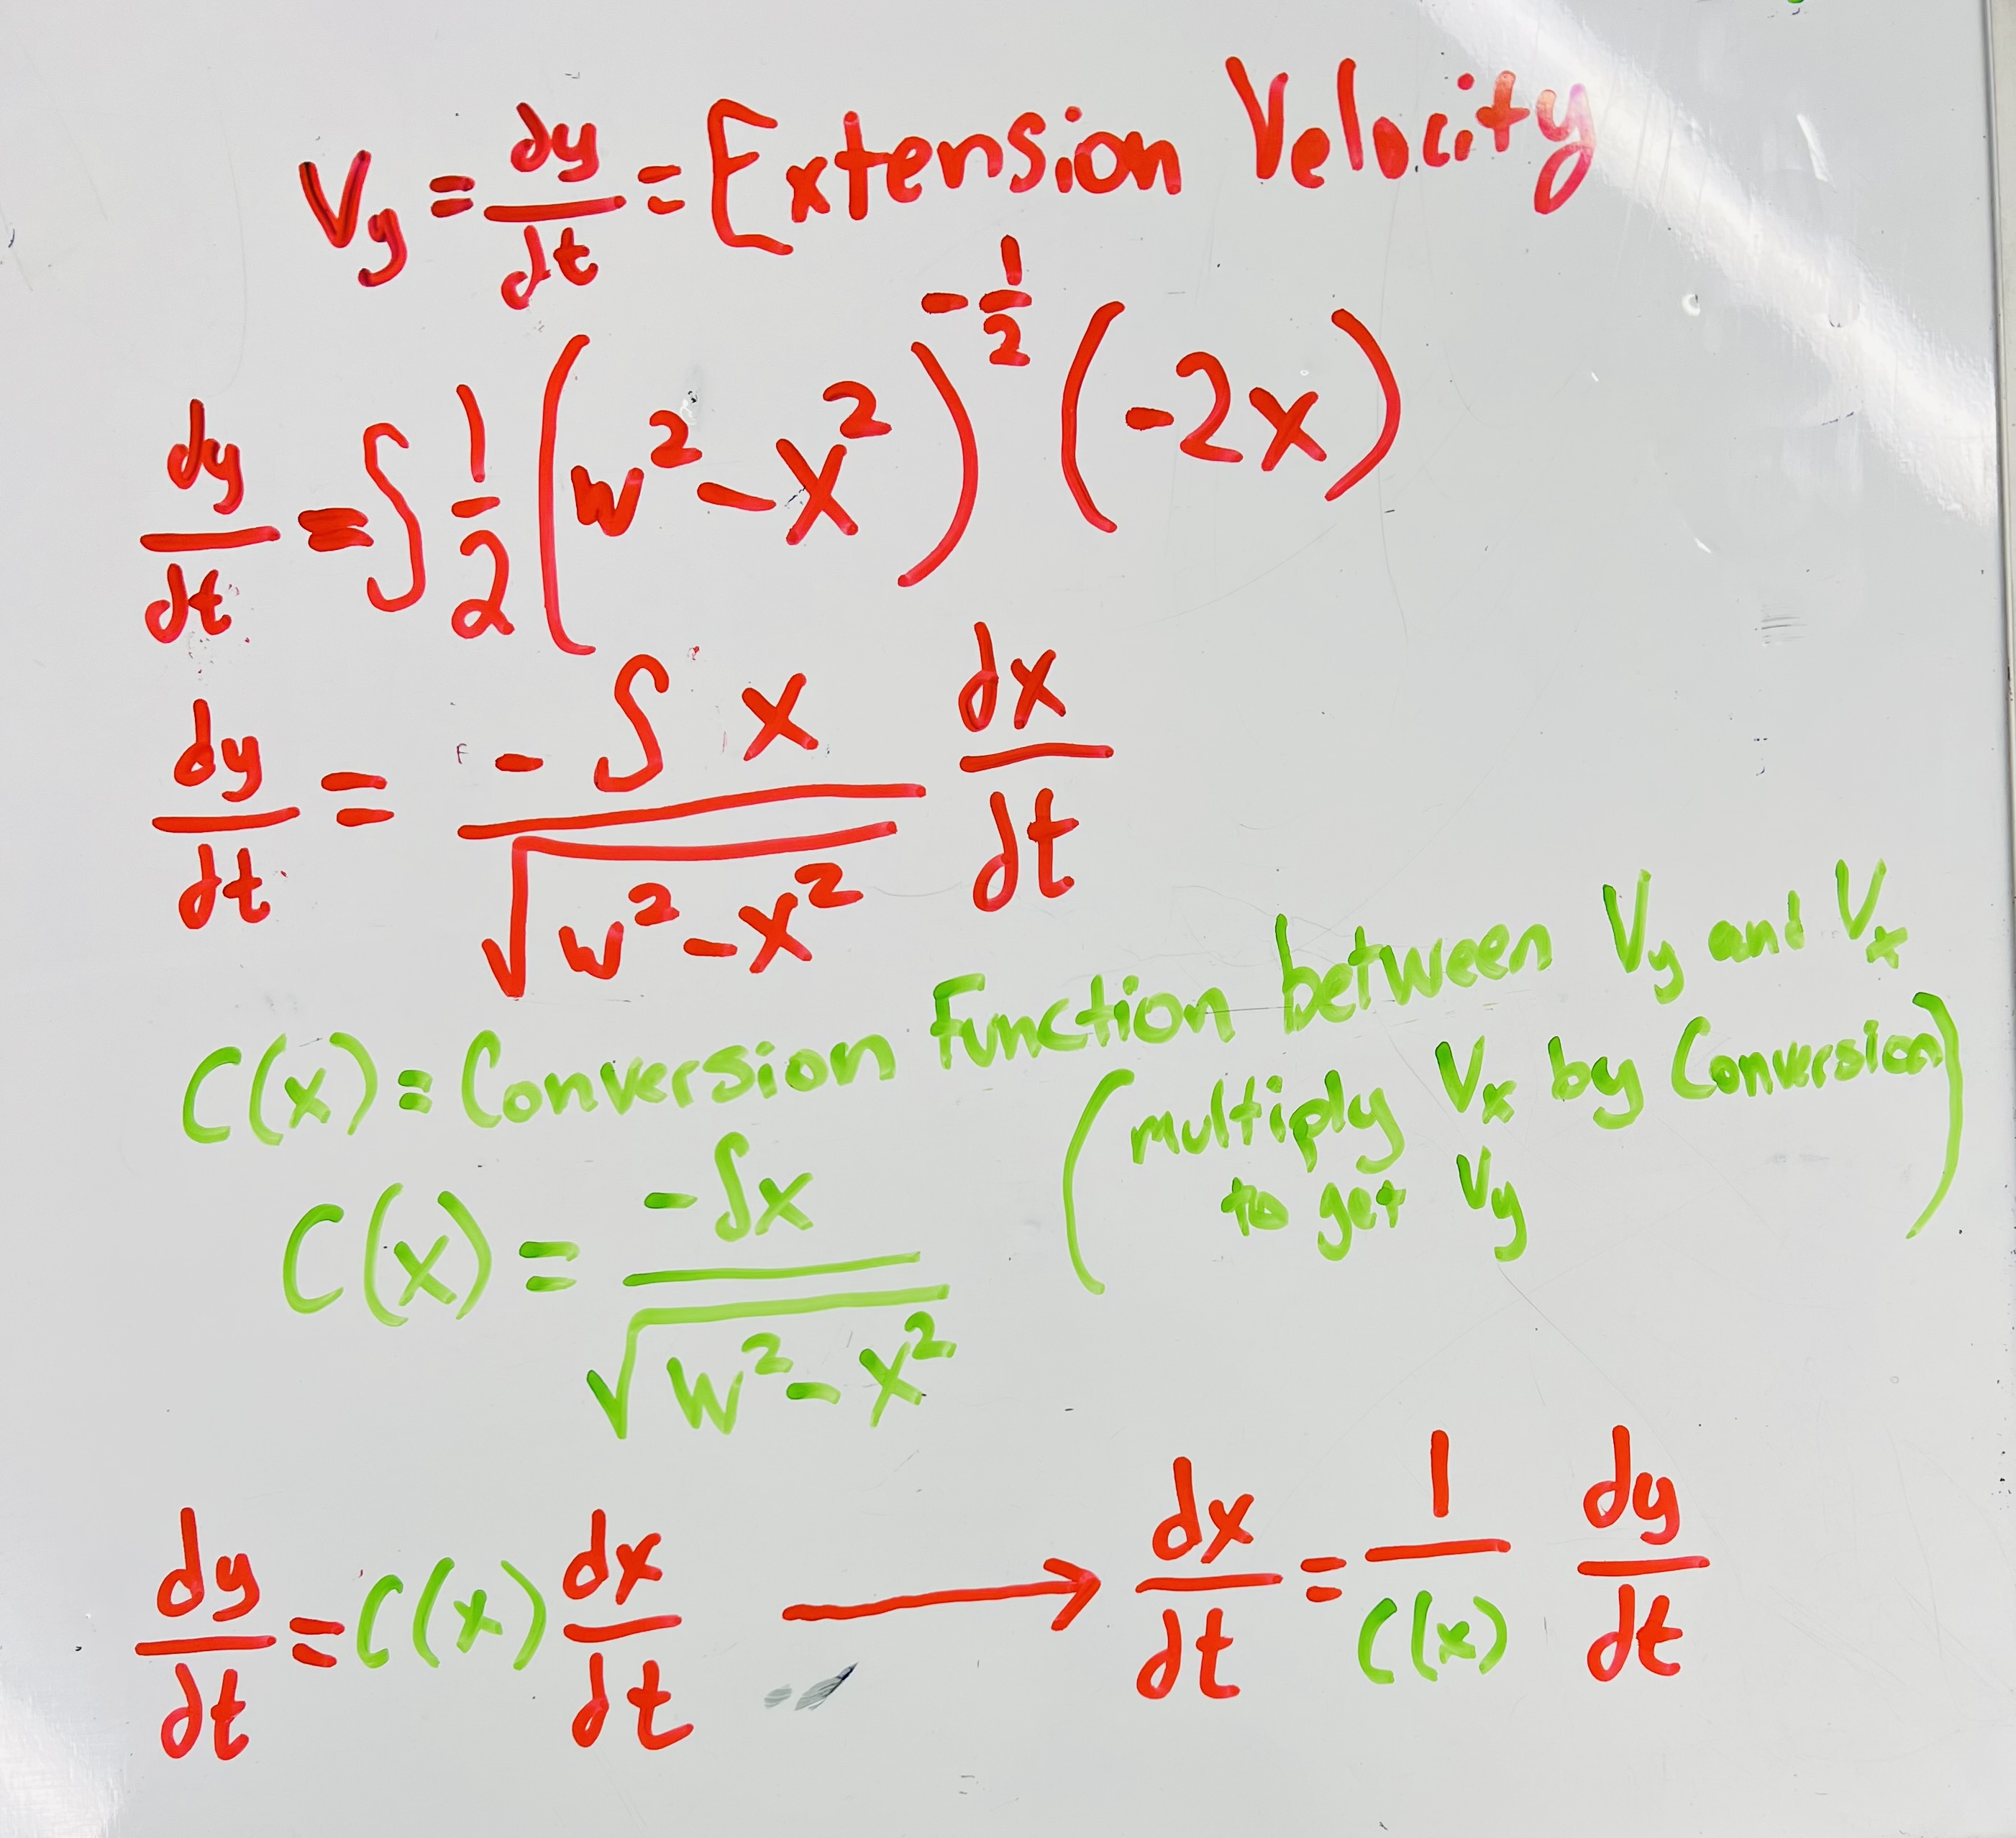 Vy = dy/dt = Extension Velocity
dy/dt = S 1/2 (w² - x²)^(-1/2) (-2x)
dy/dt = -S x / √(w² - x²) dx/dt
C(x) = Conversion Function between Vy and Vx
(multiply Vx by Conversion
to get Vy)
C(x) = -Sx / √(w² - x²)
dy/dt = C(x) dx/dt → dx/dt = 1/C(x) dy/dt